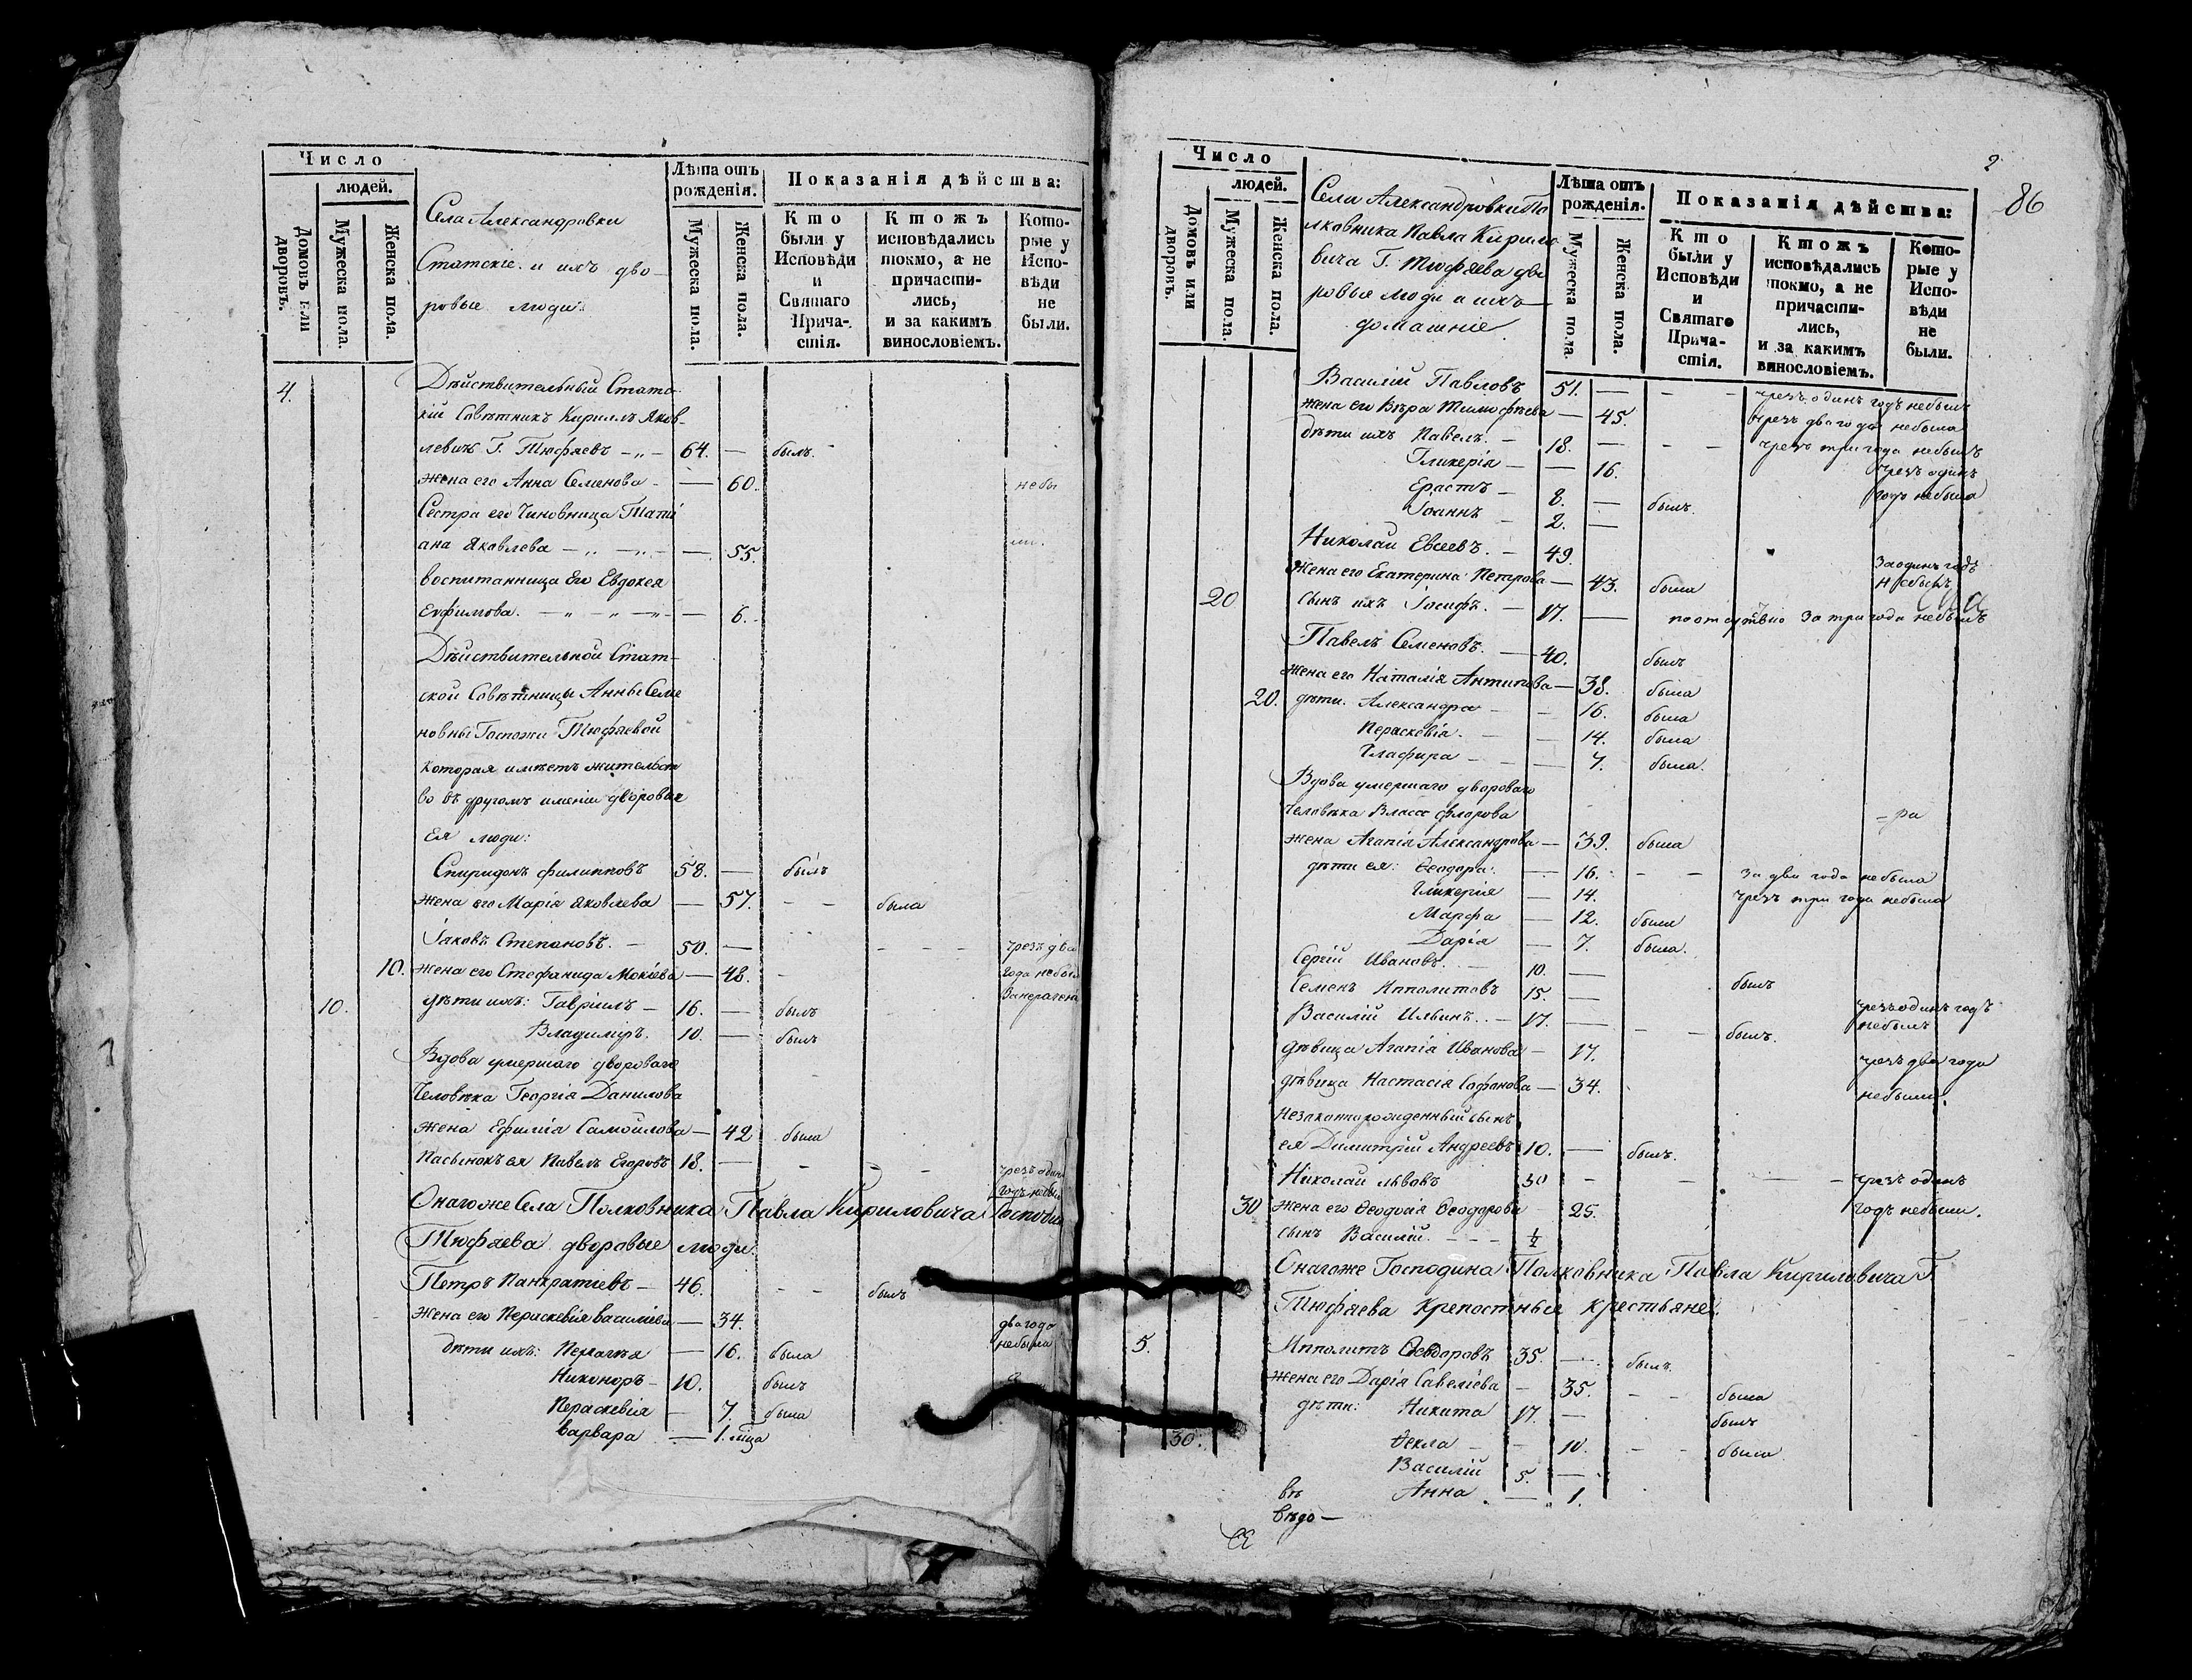 Число
людей.
Домовъ или дворовъ.
Мужеска пола.
Женска пола.
Села Александровки
Статскіе и ихъ дво-
ровые люди:
Лѣта отъ рожденія.
Мужеска пола.
Женска пола.
Показанія дѣйства:
Кто были у Исповѣди и Святаго Прича-стія.
Ктожъ исповѣдались токмо, а не причасти-лись, и за какимъ винословіемъ.
Кото-рые у Испо-вѣди не были.
4. Дѣйствительный Статс-
кій Совѣтникъ Кириллъ Яков-
левичъ Г. Тюфяевъ 64. — былъ.
жена его Анна Семенова — 60. небы
Сестра его Чиновница Тати
ана Яковлева — 55.
воспитанница Его Евдокея
Ефимова. — 6.
Дѣйствительной Стат-
ской Совѣтницы Анны Семе
новны Госпожи Тюфяевой
которая имѣетъ жительст
во въ другомъ имѣніи дворовые
ея люди:
Спиридонъ филипповъ 58. — былъ
жена его Марія Яковлева — 57. — была
Іаковъ Степановъ. — 50. — чрезъ два
10. жена его Стефанида Мокіева — 48. года небыл
10. дѣти ихъ: Гавріилъ — 16. — былъ
Владиміръ. 10. — былъ
Вдова умершаго двороваго
Человѣка Георгія Данилова
жена Ефимія Самойлова — 42 была
Пасынокъ ея Павелъ Егоровъ 18. — чрезъ один
годъ небыл
Онагоже Села Полковника Павла Кириловича Господин
Тюфяева дворовые люди
Петръ Панкратіевъ — 46. — былъ
жена его Параскевія василіева — 34. два года
небыла
дѣти ихъ: Пелагія — 16. была
Никоноръ — 10. былъ
Параскевія — 7. была
варвара — 1. мца
2
86
Число
людей.
Домовъ или дворовъ.
Мужеска пола.
Женска пола.
Села Александровки По
лковника Павла Кирило
вича Г. Тюфяева дво
ровые люди и ихъ
домашніе
Лѣта отъ рожденія.
Мужеска пола.
Женска пола.
Показанія дѣйства:
Кто были у Исповѣди и Святаго Прича-стія.
Ктожъ исповѣдались токмо, а не причасти-лись, и за какимъ винословіемъ.
Кото-рые у Испо-вѣди не были.
Василій Павловъ 51. — чрезъ одинъ годъ небылъ
жена его Вѣра Тимофѣева — 45. чрезъ два года небыла
дѣти ихъ Павелъ. — 18. — чрезъ три года небылъ
Гликерія — 16. чрезъ одинъ
годъ небыла
Ерастъ — 8. — былъ.
Іоаннъ — 2. —
Николай Евсеевъ. — 49. за одинъ годъ
небылъ
жена его Екатерина Петрова — 43. была
20 сынъ ихъ Іосифъ. — 17. — за три года небылъ
Павелъ Семеновъ. — 40. былъ
жена его Наталія Антипова — 38. была
20. дѣти. Александра — 16. была
Параскевія. — 14. была
Глафира — 7. была.
Вдова умершаго двороваго
Человѣка Власа флорова
жена Агапія Александрова — 39. была
дѣти ея: Ѳеодора. — 16. — за два года небыла
Гликерія — 14. чрезъ три года небыла
Марфа — 12. была
Дарія — 7. была.
Сергій Ивановъ. 10. —
Семенъ Ипполитовъ 15. — былъ
Василій Ильинъ. — 17. — чрезъ одинъ годъ
небылъ
дѣвица Агапія Иванова — 17. былъ.
дѣвица Настасія Софонова — 34. чрезъ два года
небыли.
Незаконнорожденный сынъ
ея Димитрій Андреевъ 10. — былъ.
Николай львовъ 30 — чрезъ одинъ
30 жена его Ѳеодосія Ѳеодорова 25. годъ небыли.
сынъ Василій. — ½
Онагоже Господина Полковника Павла Кириловича Г
Тюфяева крепостные крестьяне.
5. Ипполитъ Ѳеодоровъ 35. — былъ.
жена его Дарія Савеліева — 35. — была
дѣти: Никита 17. — былъ
30. Ѳекла — 10. — была
Василій 5. —
Анна — 1.
въ
вѣдо—